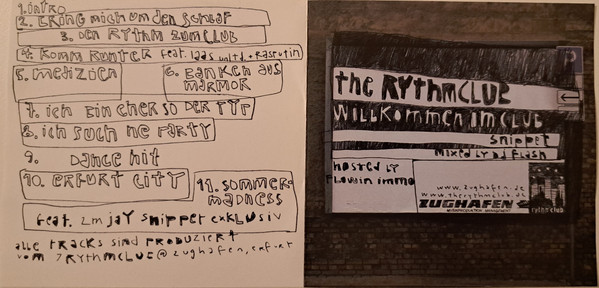 1. intro
2. BRING mich um den SCHLAF
3. DEN RYTHM ZUM CLUB
4. KOMM RUNTER feat. laas unltd. + Rasputin
5. MEDIZIEN
6. BANKEN aus MARMOR
7. ich Bin EHER SO DER TYP
8. ich such ne PARTY
9. DANCE hit
10. ERFURT CITY
11. SOMMER-
MADNESS
feat. Lmjay SNIPPET EXKLUSIV
alle tracks sind PRODUZIERT
vom 7RYTHMCLUB@zughafen, erfurt
the RYTHMCLUB
WILLKOMMEN IM CLUB
snippet
mixed by DJ FLASH
hosted by
Flowin immo
www.zughafen.de
www.therythmclub.de
ZUGHAFEN
rythmclub